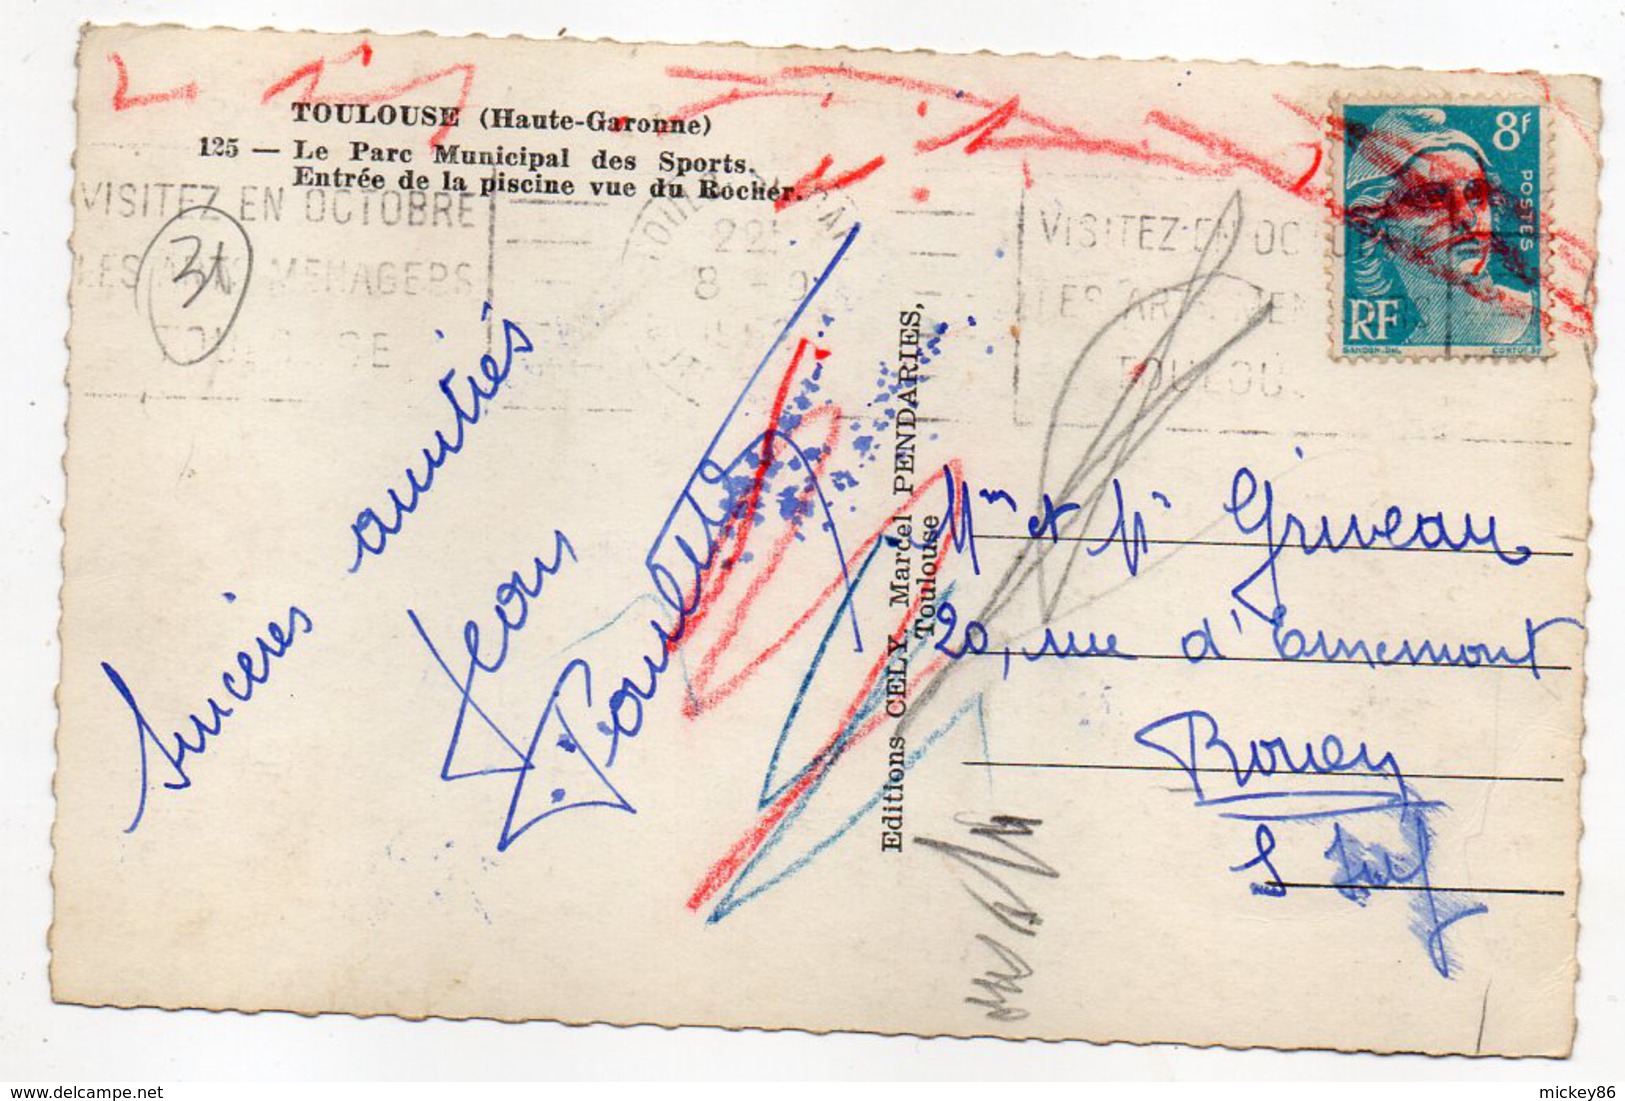 TOULOUSE (Haute-Garonne)
125 — Le Parc Municipal des Sports.
Entrée de la piscine vue du Rocher.
VISITEZ EN OCTOBRE
LES ARTS MENAGERS
TOULOUSE
22
8 -
VISITEZ EN OCTOBRE
LES ARTS MENAGERS
TOULOUSE
8F
POSTES
RF
GANDON DEL.
CORTOT SC
3t
Sincères amitiés
Jean
Editions CELY, Marcel PENDARIES,
Toulouse
Mm et Mr Griveau
20, rue d'Ernemont
Rouen
S Inf
mickey86